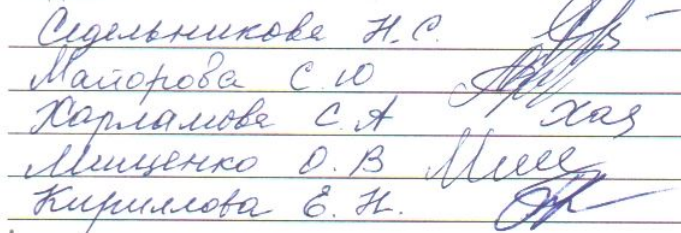 Седельникова Н.С.
Майорова С.Ю
Харламова С.А
Мищенко О.В
Кириллова Е.Н.